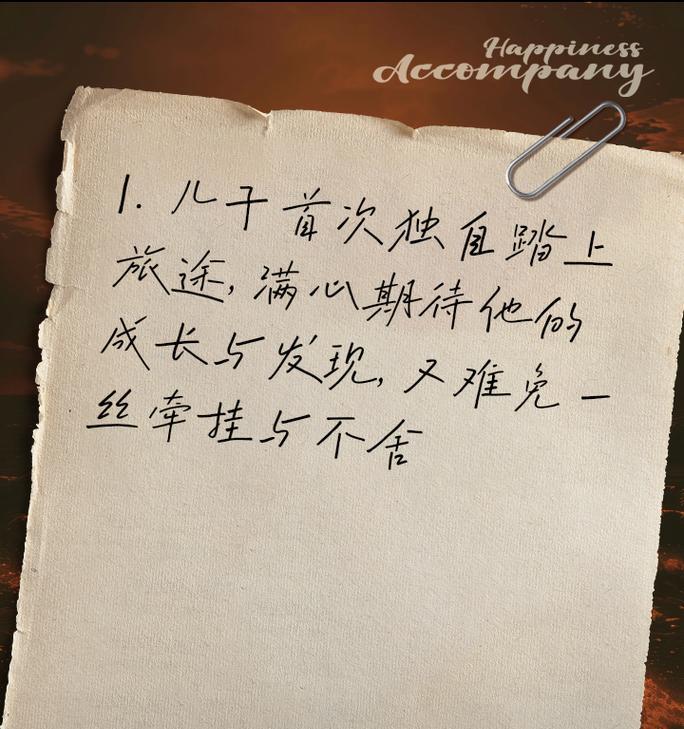 Happiness
Accompany
1. 儿子首次独自踏上
旅途,满心期待他的
成长与发现,又难免一
丝牵挂与不舍